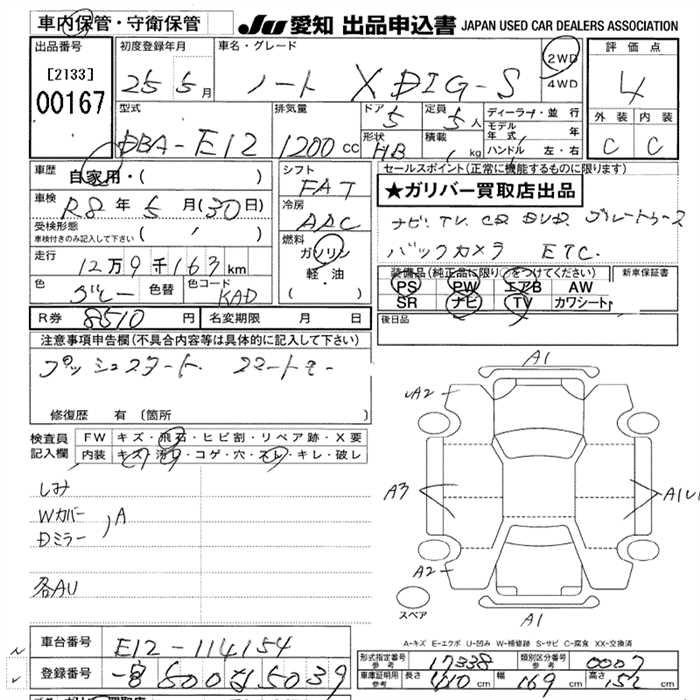 車内保管・守衛保管 JU 愛知 出品申込書 JAPAN USED CAR DEALERS ASSOCIATION
出品番号 初度登録年月 車名・グレード 評価点
[2133] 25年5月 ノート X DIG-S 2WD 4WD 4
00167 型式 排気量 ドア 定員 ディーラー・並行 外装 内装
DBA-E12 1200cc 5 5人 モデル年式 年 C C
形状 HB 積載 kg ハンドル 左・右
車歴 自家用・( ) シフト セールスポイント(正常に機能するものに限ります)
FAT ★ガリバー買取店出品
車検 R8年5月(30日) 冷房 AAC ナビ. TV. CD. DVD. ブルートゥース
受検形態 車検付きのみ記入して下さい ( / ) 燃料 バックカメラ ETC.
走行 12万9千163km ガソリン 軽・油 ( )
装備品(純正品に限り○をつけてください) 新車保証書
色 グレー 色替 色コード KAD PS PW エアB AW
SR ナビ TV カワシート
R券 8510円 名変期限 月 日 後日品
注意事項申告欄(不具合内容等は具体的に記入して下さい)
プッシュスタート. スマートキー
修復歴 有 (箇所
検査員記入欄 FW キズ・飛石・ヒビ割・リペア跡・X要
内装 キズ・汚れ・コゲ・穴・スレ・キレ・破レ
A1
A2
しみ
Wカバー
Dミラー A
A3 A1U
各AU
A2
スペア
A1
A-キズ E-エクボ U-凹み W-補修跡 S-サビ C-腐食 XX-交換済
車台番号 E12-114154
型式指定番号 参考 17338 類別区分番号 参考 0007
登録番号 500 5039
車庫証明用 参考 長さ 410cm 幅 169cm 高さ 152cm